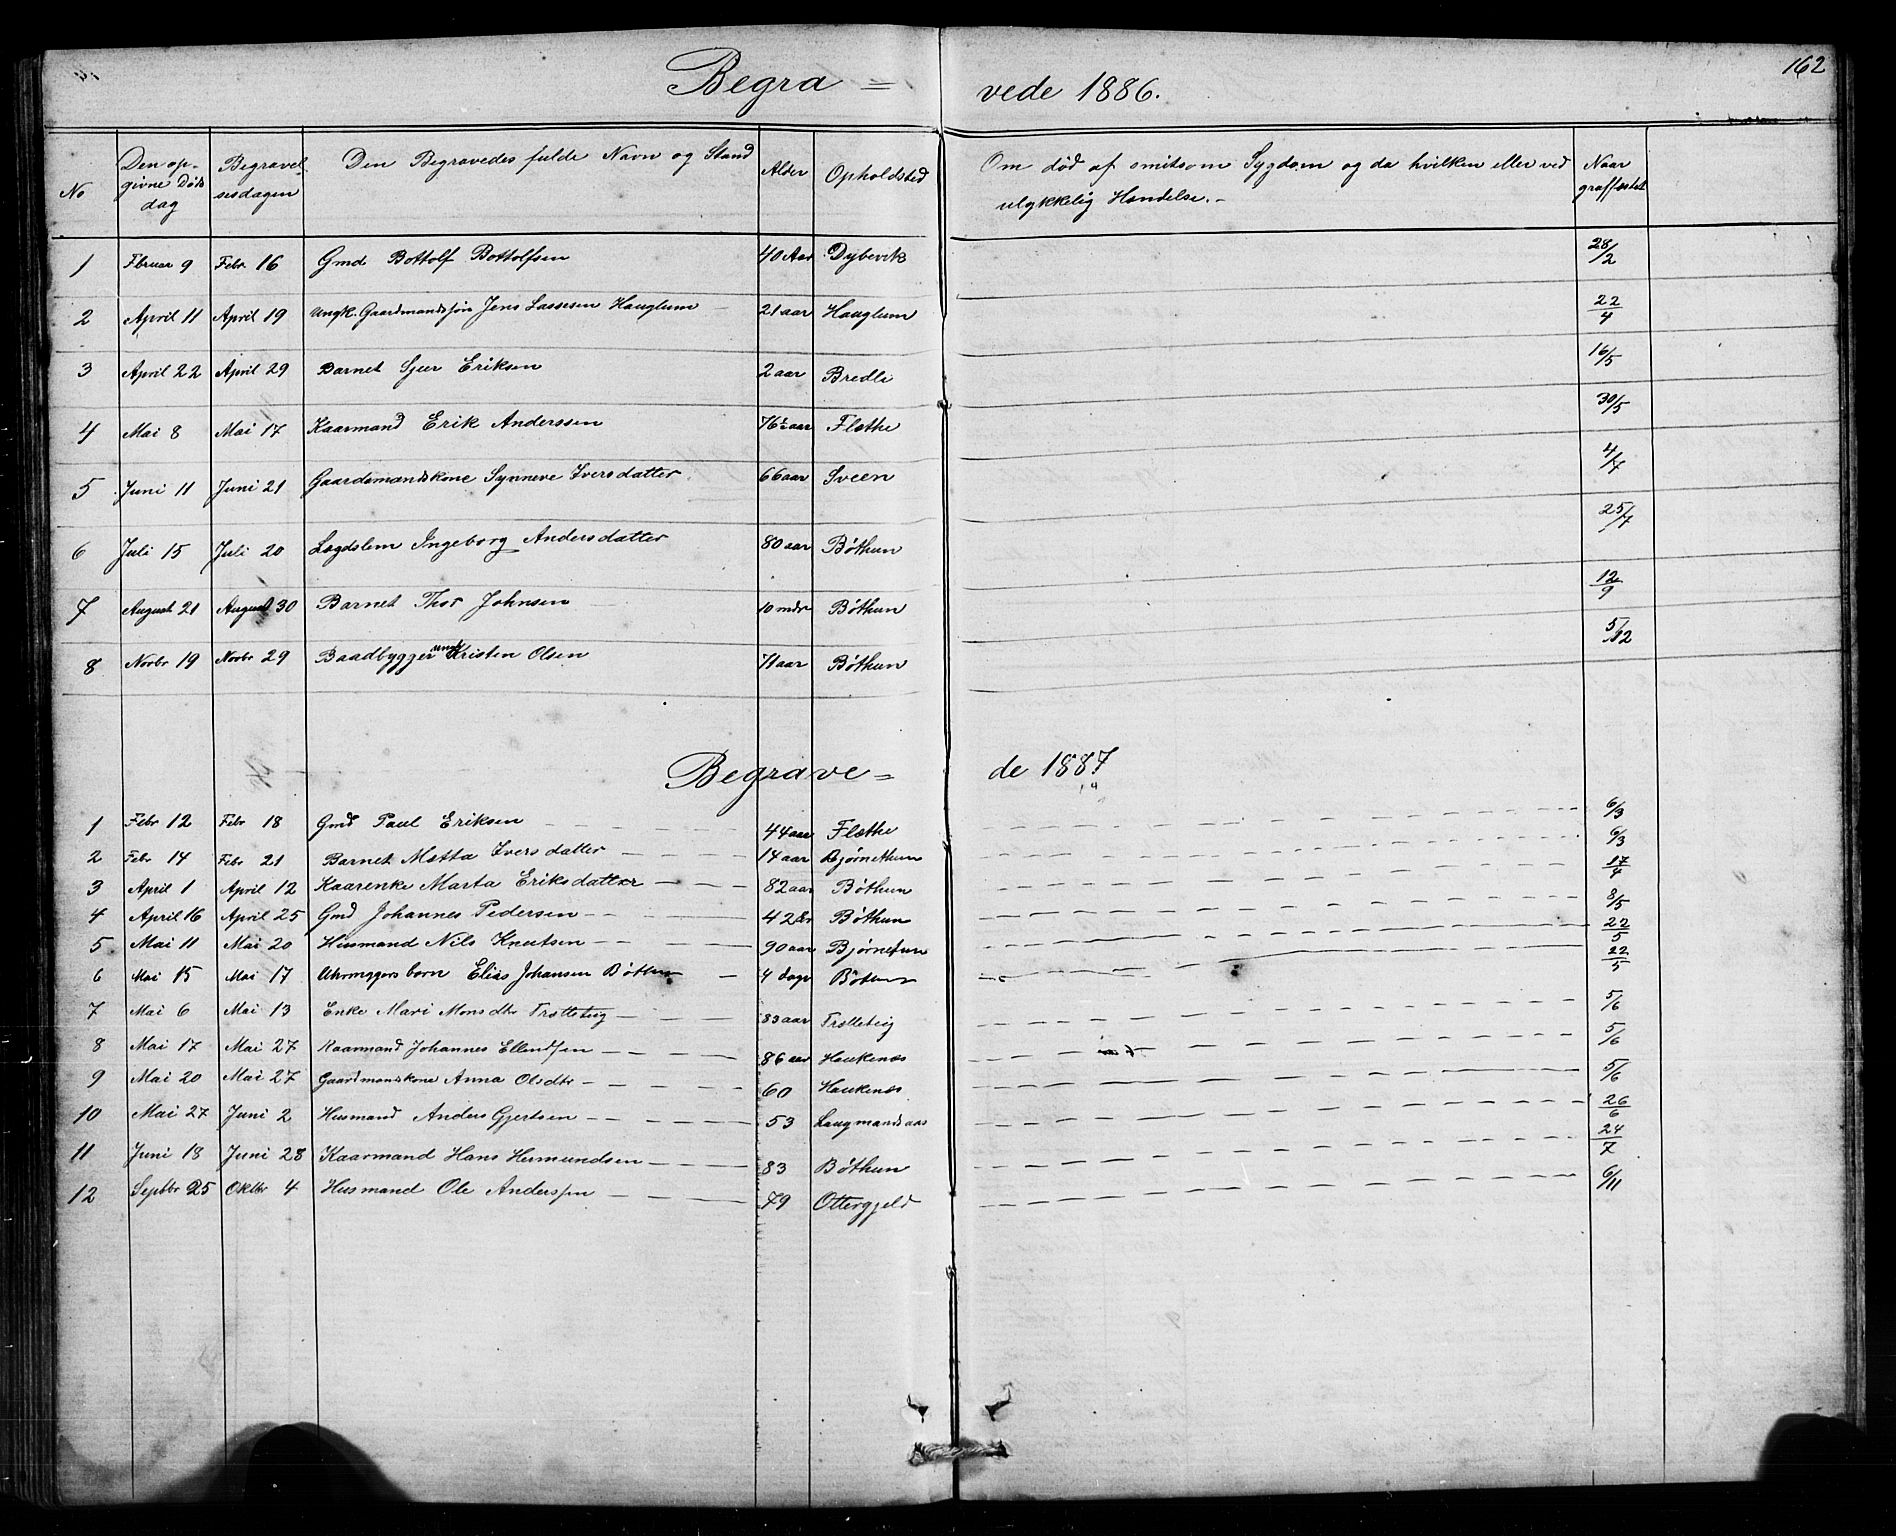 162
Begra = vede 1886.
No | Den op-givne Døds dag | Begravel-sesdagen | Den Begravedes fulde Navn og Stand | Alder | Opholdsted | Om død af smitsom Sygdom og da hvilken eller ved ulykkelig Hændelse. - | Naar graffæstet
1 | Fbruar 9 | Febr 16 | Gmd Bottolf Bottolfsen | 40 Aar | Dybevik | 28/2
2 | April 11 | April 19 | Ungk. Gaardmandssøn Jens Lassesen Hauglum | 21 aar | Hauglum | 22/4
3 | April 22 | April 29 | Barnet Sjur Eriksen | 2 aar | Bredli | 16/5
4 | Mai 8 | Mai 17 | Kaarmand Erik Anderssen | 76½ aar | Flæthe | 30/5
5 | Juni 11 | Juni 21 | Gaardsmandskone Synneve Iversdatter | 66 aar | Sveen | 4/7
6 | Juli 15 | Juli 20 | Lægdslem Ingeborg Andersdatter | 80 aar | Bøthun | 25/7
7 | August 21 | August 30 | Barnet Thor Johnsen | 10 mdr | Bøthun | 12/9
8 | Novbr 19 | Novbr 29 | Baadbygger ungk Kristen Olsen | 71 aar | Bøthun | 5/12
Begrave = de 1887
1 | Febr 12 | Febr 18 | Gmd Paul Eriksen | 44 aar | Flæthe | 6/3
2 | Febr 14 | Febr 21 | Barnet Metta Iversdatter | 14 aar | Bjørnethun | 6/3
3 | April 1 | April 12 | Kaarenke Marta Eriksdatter | 82 aar | Bøthun | 17/4
4 | April 16 | April 25 | Gmd Johannes Pedersen | 42 | Bøthun | 8/5
5 | Mai 11 | Mai 20 | Husmand Nils Knutsen | 90 aar | Bjørnetun | 22/5
6 | Mai 15 | Mai 17 | born Elias Johansen Bøthun | 4 dage | Bøthun | 22/5
7 | Mai 6 | Mai 13 | Enke Mari Monsdtr Trætteteig | 83 aar | Trælleteig | 5/6
8 | Mai 17 | Mai 27 | Kaarmand Johannes Ellendsen | 86 aar | Haukenæs | 5/6
9 | Mai 20 | Mai 27 | Gaardmanskone Anna Olsdtr | 60 | Haukenæs | 5/6
10 | Mai 27 | Juni 2 | Husmand Anders Gjertsen | 53 | Laugmandsaas | 26/6
11 | Juni 18 | Juni 28 | Kaarmand Hans Hermundsen | 83 | Bøthun | 24/7
12 | Septbr 25 | Oktbr 4 | Husmand Ole Anderssen | 79 | Ottergjeld | 6/11